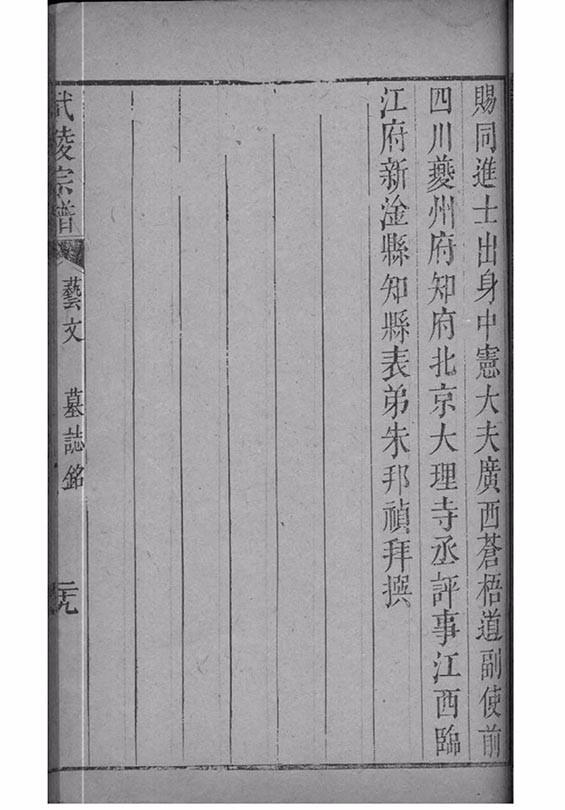 賜同進士出身中憲大夫廣西蒼梧道副使前
四川夔州府知府北京大理寺丞評事江西臨
江府新淦縣知縣表弟朱邦禎拜撰
武陵宗譜
藝文
墓誌銘
二九